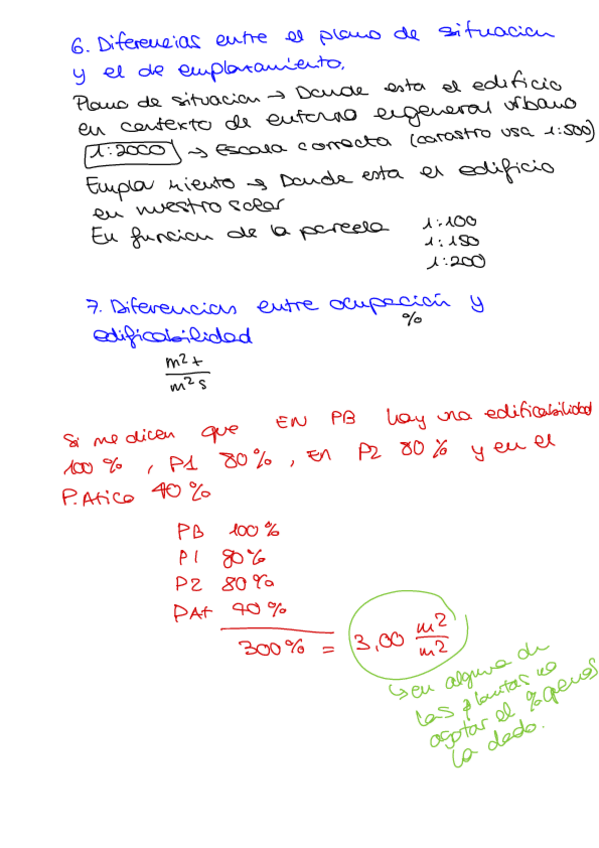 6. Diferencias entre el plano de situacion
y el de emplazamiento.
Plano de situacion → Donde esta el edificio
en contexto de entorno en general urbano
1:2000 → Escala correcta (catastro usa 1:500)
Emplazamiento → Donde esta el edificio
en nuestro solar
En funcion de la parcela 1:100
1:150
1:200
7. Diferencias entre ocupación y
%
edificabilidad
m²t
m²s
Si me dicen que EN PB hay una edificabilidad
100%, P1 80%, EN P2 80% y en el
P.Atico 40%
PB 100%
P1 80%
P2 80%
PAt 40%
300% = 3,00 m²/m²
↳ en alguna de
las plantas no
agotar el %
la dado.